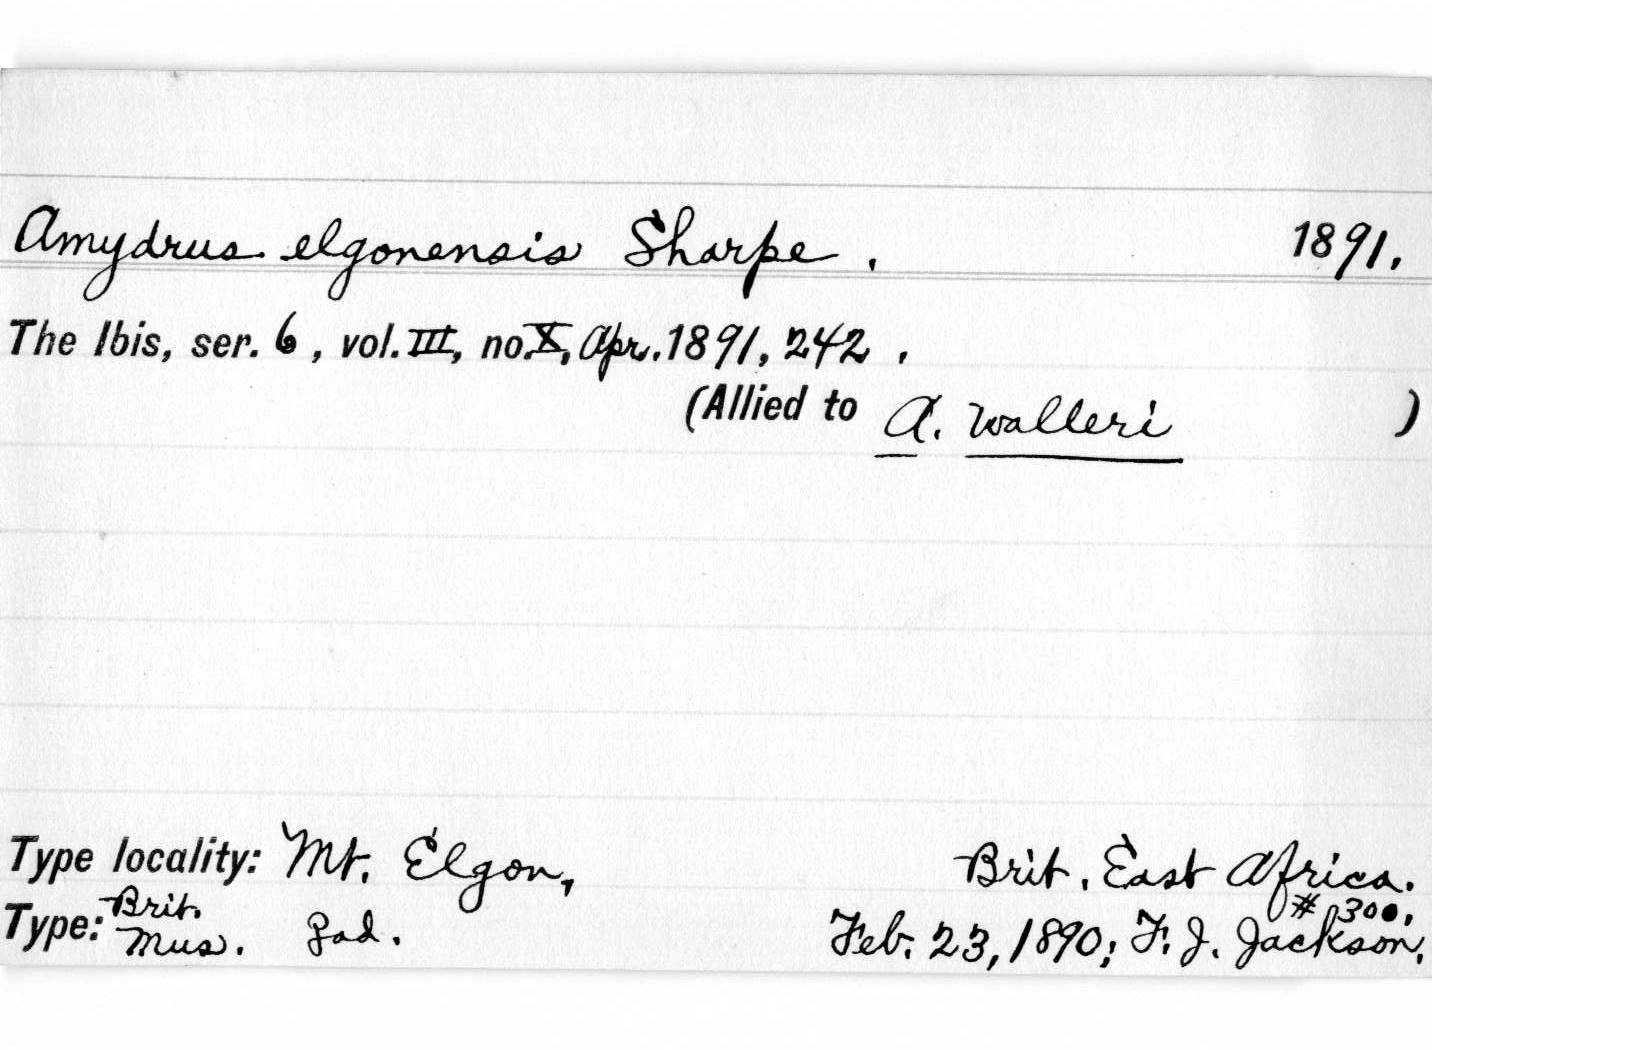 Amydrus elgonensis Sharpe. 1891.
The Ibis, ser. 6, vol. III, no. X, Apr. 1891, 242.
(Allied to A. walleri )
Type locality: Mt. Elgon, Brit. East Africa.
Type: Brit. Mus. ♂ad. #300,
Feb. 23, 1890; F. J. Jackson.